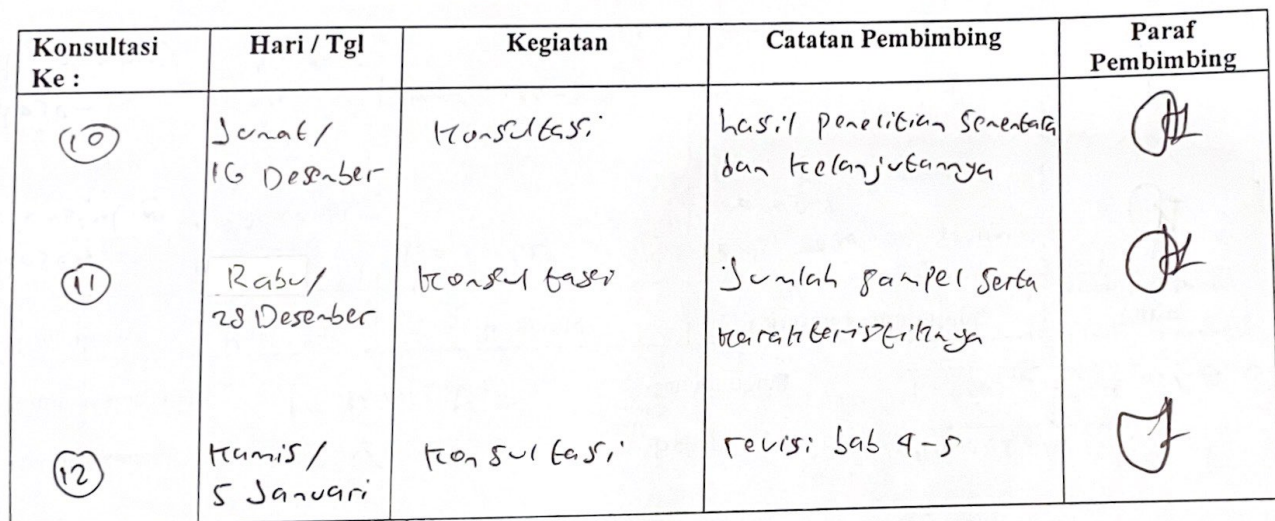 Konsultasi Ke :
Hari / Tgl
Kegiatan
Catatan Pembimbing
Paraf Pembimbing
10
Jumat /
16 Desember
Konsultasi
hasil penelitian sementara
dan kelanjutannya
11
Rabu /
28 Desember
Konsultasi
Jumlah sampel serta
karakteristiknya
12
Kamis /
5 Januari
Konsultasi
revisi bab 4-5